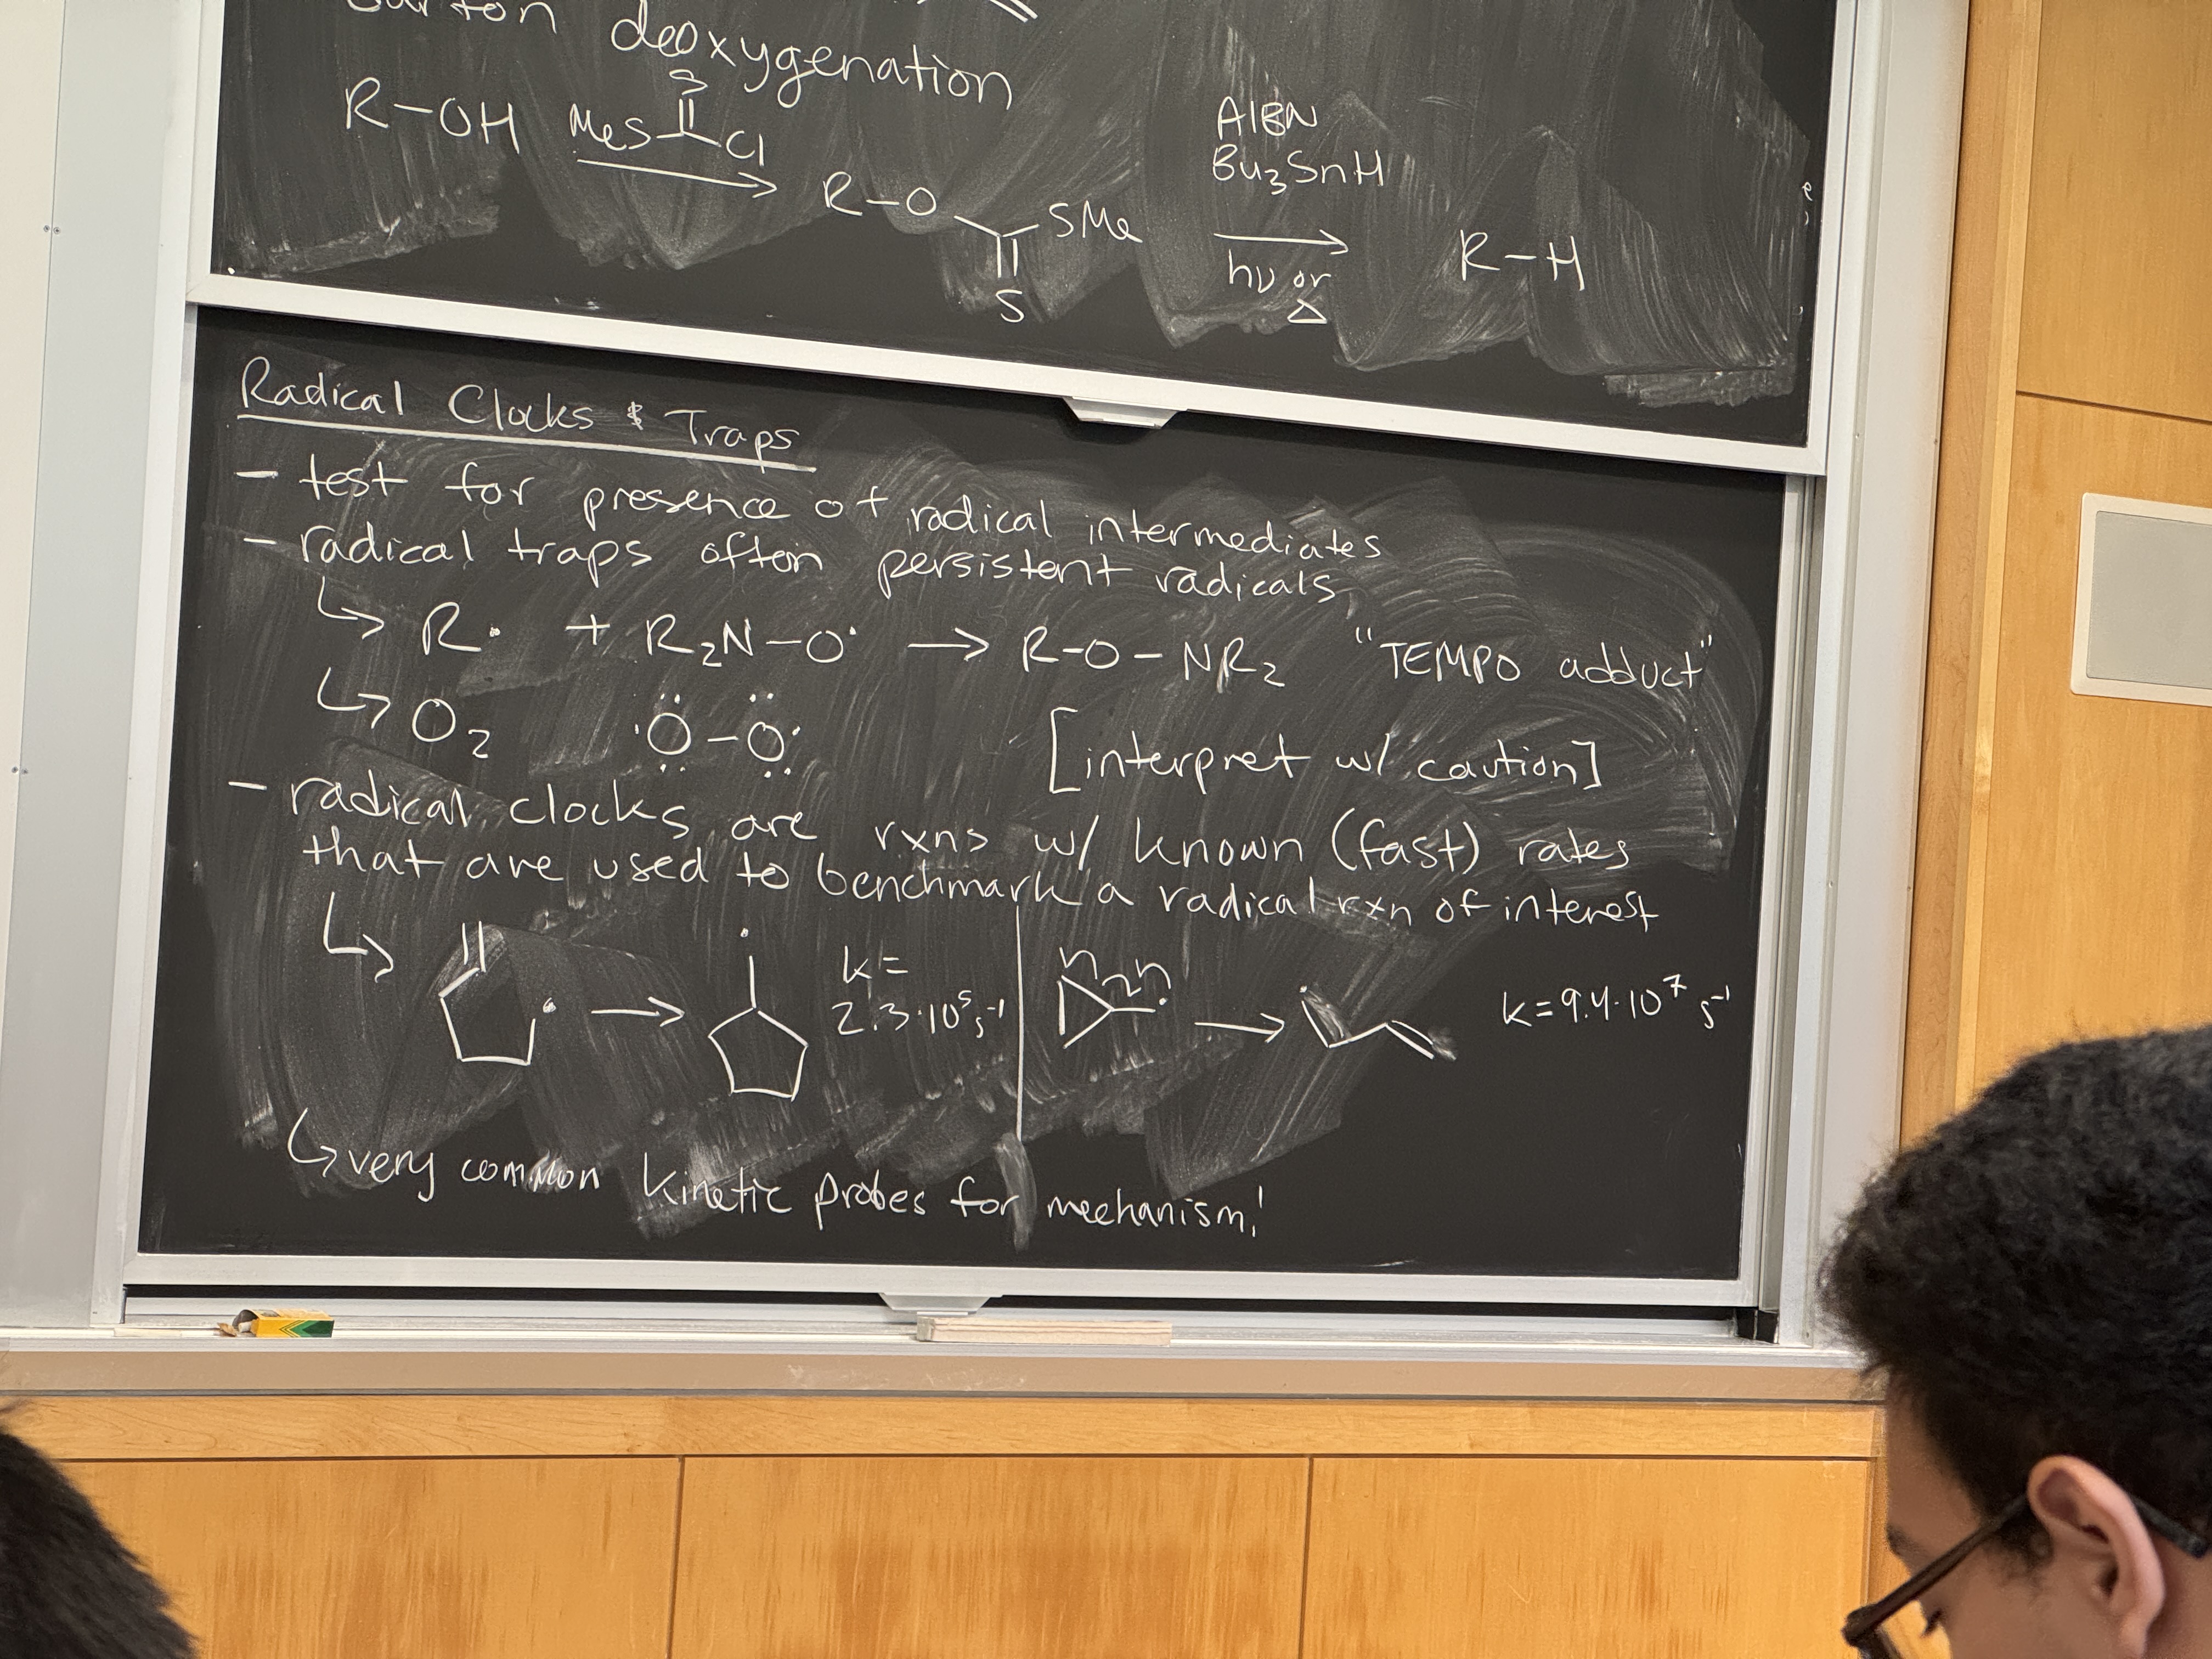 Barton deoxygenation
R-OH
S
MeS Cl
R-O SMe
S
AIBN
Bu3SnH
hν or
Δ
R-H
Radical Clocks & Traps
- test for presence of radical intermediates
- radical traps often persistent radicals
↳ R· + R2N-O· → R-O-NR2 "TEMPO adduct"
↳ O2 ·Ö-Ö· [interpret w/ caution]
- radical clocks are rxns w/ known (fast) rates
that are used to benchmark a radical rxn of interest
k=
2.3·10⁵ s⁻¹
k=9.4·10⁷ s⁻¹
↳ very common kinetic probes for mechanism!